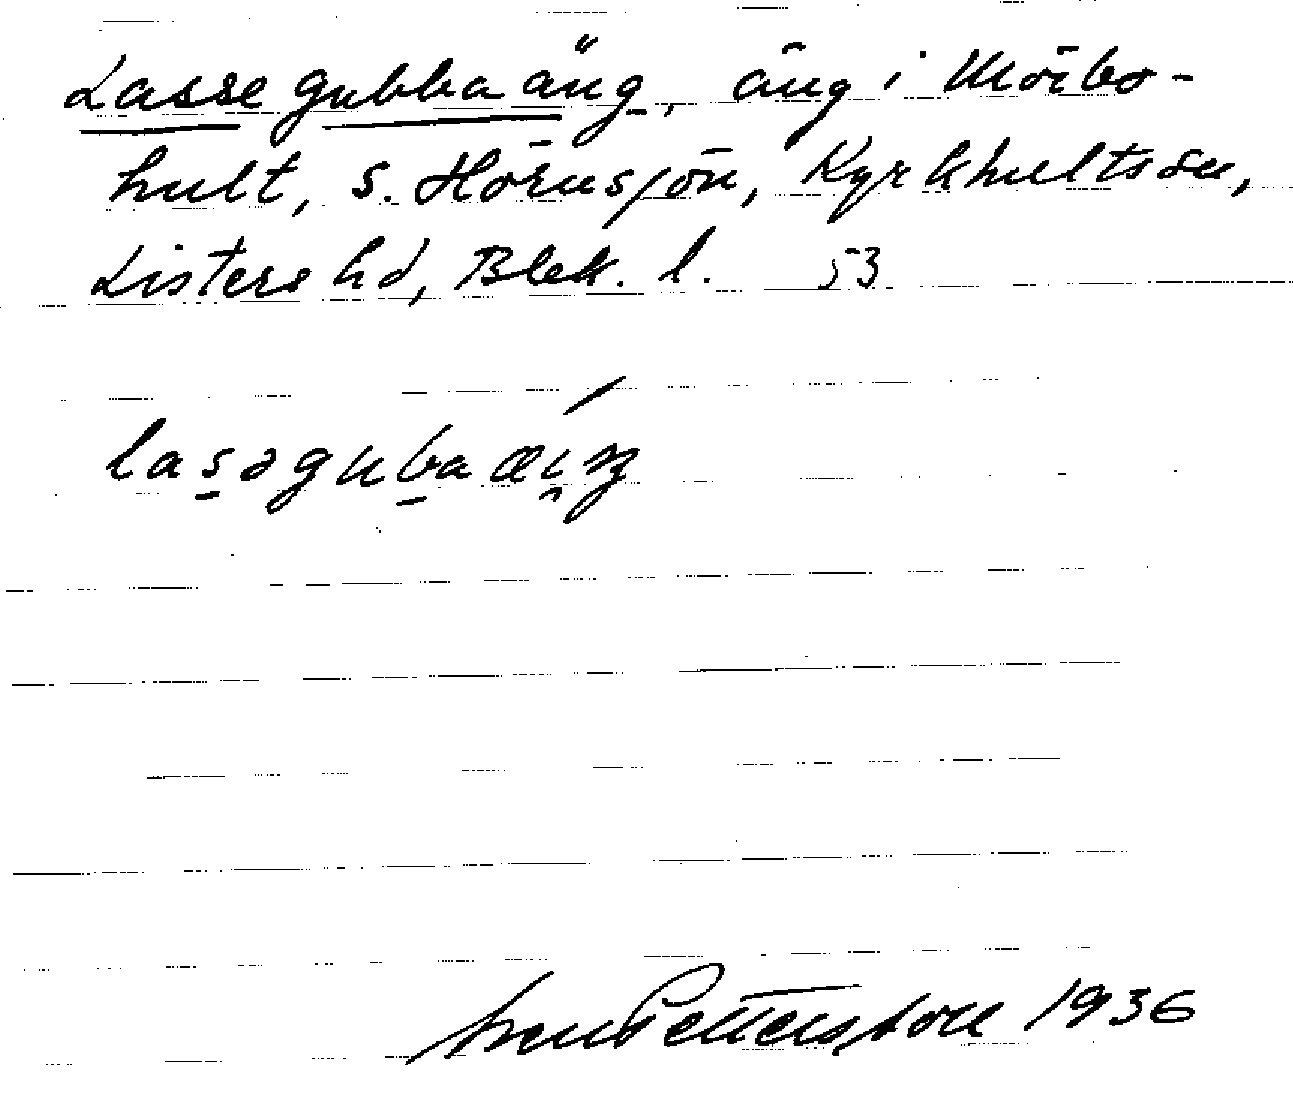 Lasse gubba äng, äng i Mörbo-
hult, s. Hörnsjön, Kyrkhults sn,
Listers hd, Blek. l. 53
lasəgubaæiŋ
Sven Pettersson 1936